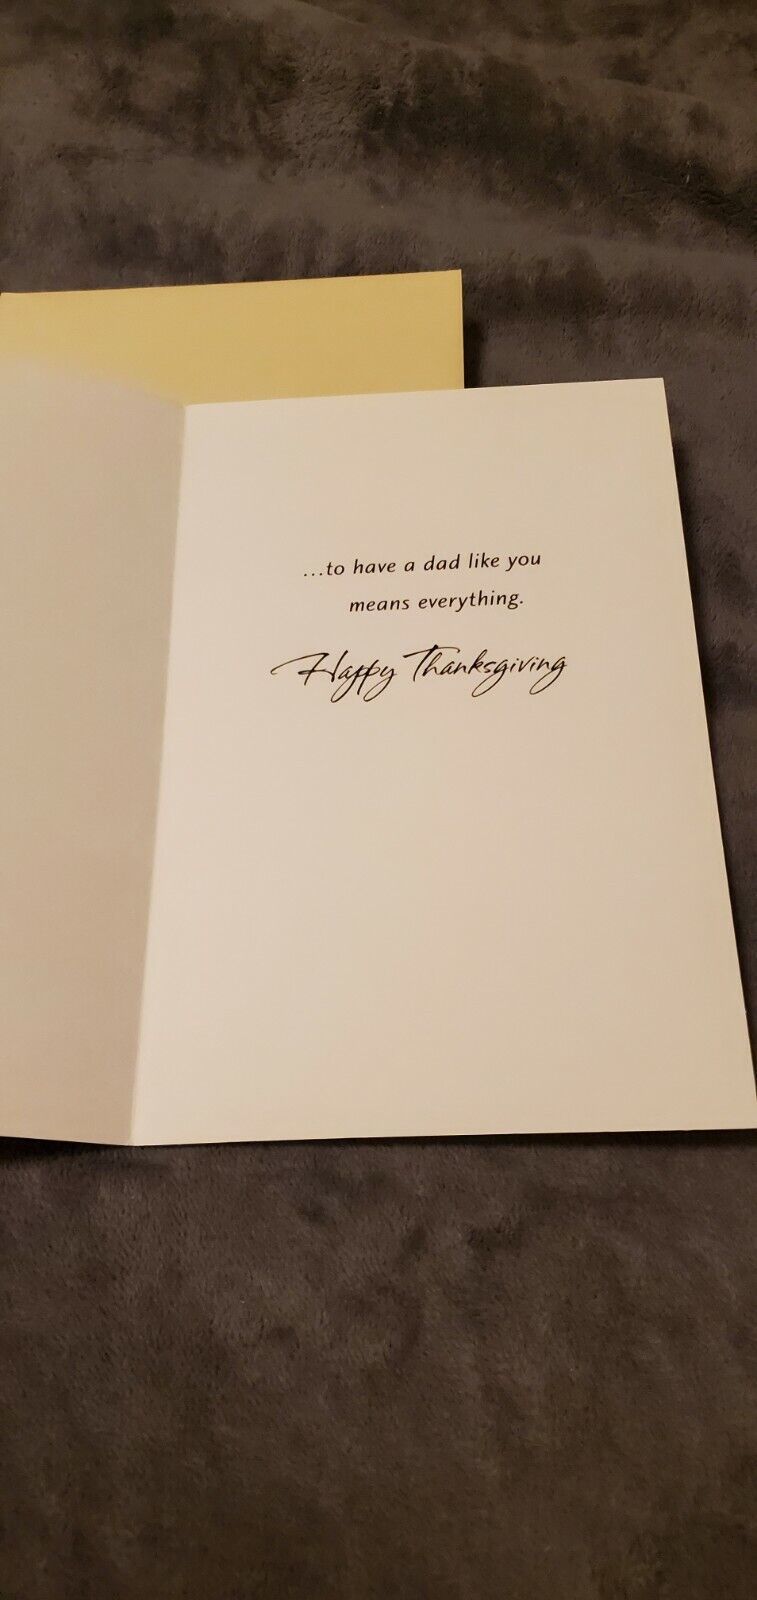 ...to have a dad like you
means everything.
Happy Thanksgiving